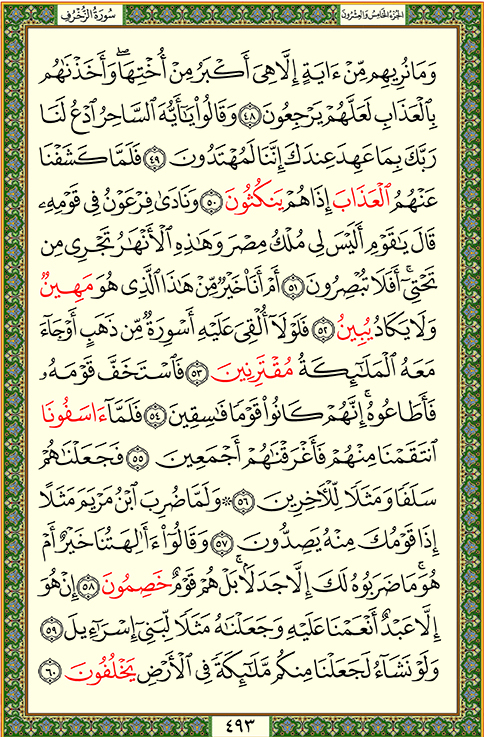 سُورَةُ الزُّخْرُفِ
الجُزْءُ الخَامِسُ وَالعِشْرُونَ
وَمَا نُرِيهِم مِّنْ ءَايَةٍ إِلَّا هِىَ أَكْبَرُ مِنْ أُخْتِهَا ۖ وَأَخَذْنَٰهُم
بِٱلْعَذَابِ لَعَلَّهُمْ يَرْجِعُونَ ٤٨ وَقَالُوا۟ يَٰٓأَيُّهَ ٱلسَّاحِرُ ٱدْعُ لَنَا
رَبَّكَ بِمَا عَهِدَ عِندَكَ إِنَّنَا لَمُهْتَدُونَ ٤٩ فَلَمَّا كَشَفْنَا
عَنْهُمُ ٱلْعَذَابَ إِذَا هُمْ يَنكُثُونَ ٥٠ وَنَادَىٰ فِرْعَوْنُ فِى قَوْمِهِۦ
قَالَ يَٰقَوْمِ أَلَيْسَ لِى مُلْكُ مِصْرَ وَهَٰذِهِ ٱلْأَنْهَٰرُ تَجْرِى مِن
تَحْتِىٓ ۖ أَفَلَا تُبْصِرُونَ ٥١ أَمْ أَنَا۠ خَيْرٌ مِّنْ هَٰذَا ٱلَّذِى هُوَ مَهِينٌ
وَلَا يَكَادُ يُبِينُ ٥٢ فَلَوْلَآ أُلْقِىَ عَلَيْهِ أَسْوِرَةٌ مِّن ذَهَبٍ أَوْ جَآءَ
مَعَهُ ٱلْمَلَٰٓئِكَةُ مُقْتَرِنِينَ ٥٣ فَٱسْتَخَفَّ قَوْمَهُۥ
فَأَطَاعُوهُ ۚ إِنَّهُمْ كَانُوا۟ قَوْمًا فَٰسِقِينَ ٥٤ فَلَمَّآ ءَاسَفُونَا
ٱنتَقَمْنَا مِنْهُمْ فَأَغْرَقْنَٰهُمْ أَجْمَعِينَ ٥٥ فَجَعَلْنَٰهُمْ
سَلَفًا وَمَثَلًا لِّلْءَاخِرِينَ ٥٦ ۞ وَلَمَّا ضُرِبَ ٱبْنُ مَرْيَمَ مَثَلًا
إِذَا قَوْمُكَ مِنْهُ يَصِدُّونَ ٥٧ وَقَالُوٓا۟ ءَأَٰلِهَتُنَا خَيْرٌ أَمْ
هُوَ ۚ مَا ضَرَبُوهُ لَكَ إِلَّا جَدَلًۢا ۚ بَلْ هُمْ قَوْمٌ خَصِمُونَ ٥٨ إِنْ هُوَ
إِلَّا عَبْدٌ أَنْعَمْنَا عَلَيْهِ وَجَعَلْنَٰهُ مَثَلًا لِّبَنِىٓ إِسْرَٰٓءِيلَ ٥٩
وَلَوْ نَشَآءُ لَجَعَلْنَا مِنكُم مَّلَٰٓئِكَةً فِى ٱلْأَرْضِ يَخْلُفُونَ ٦٠
٤٩٣